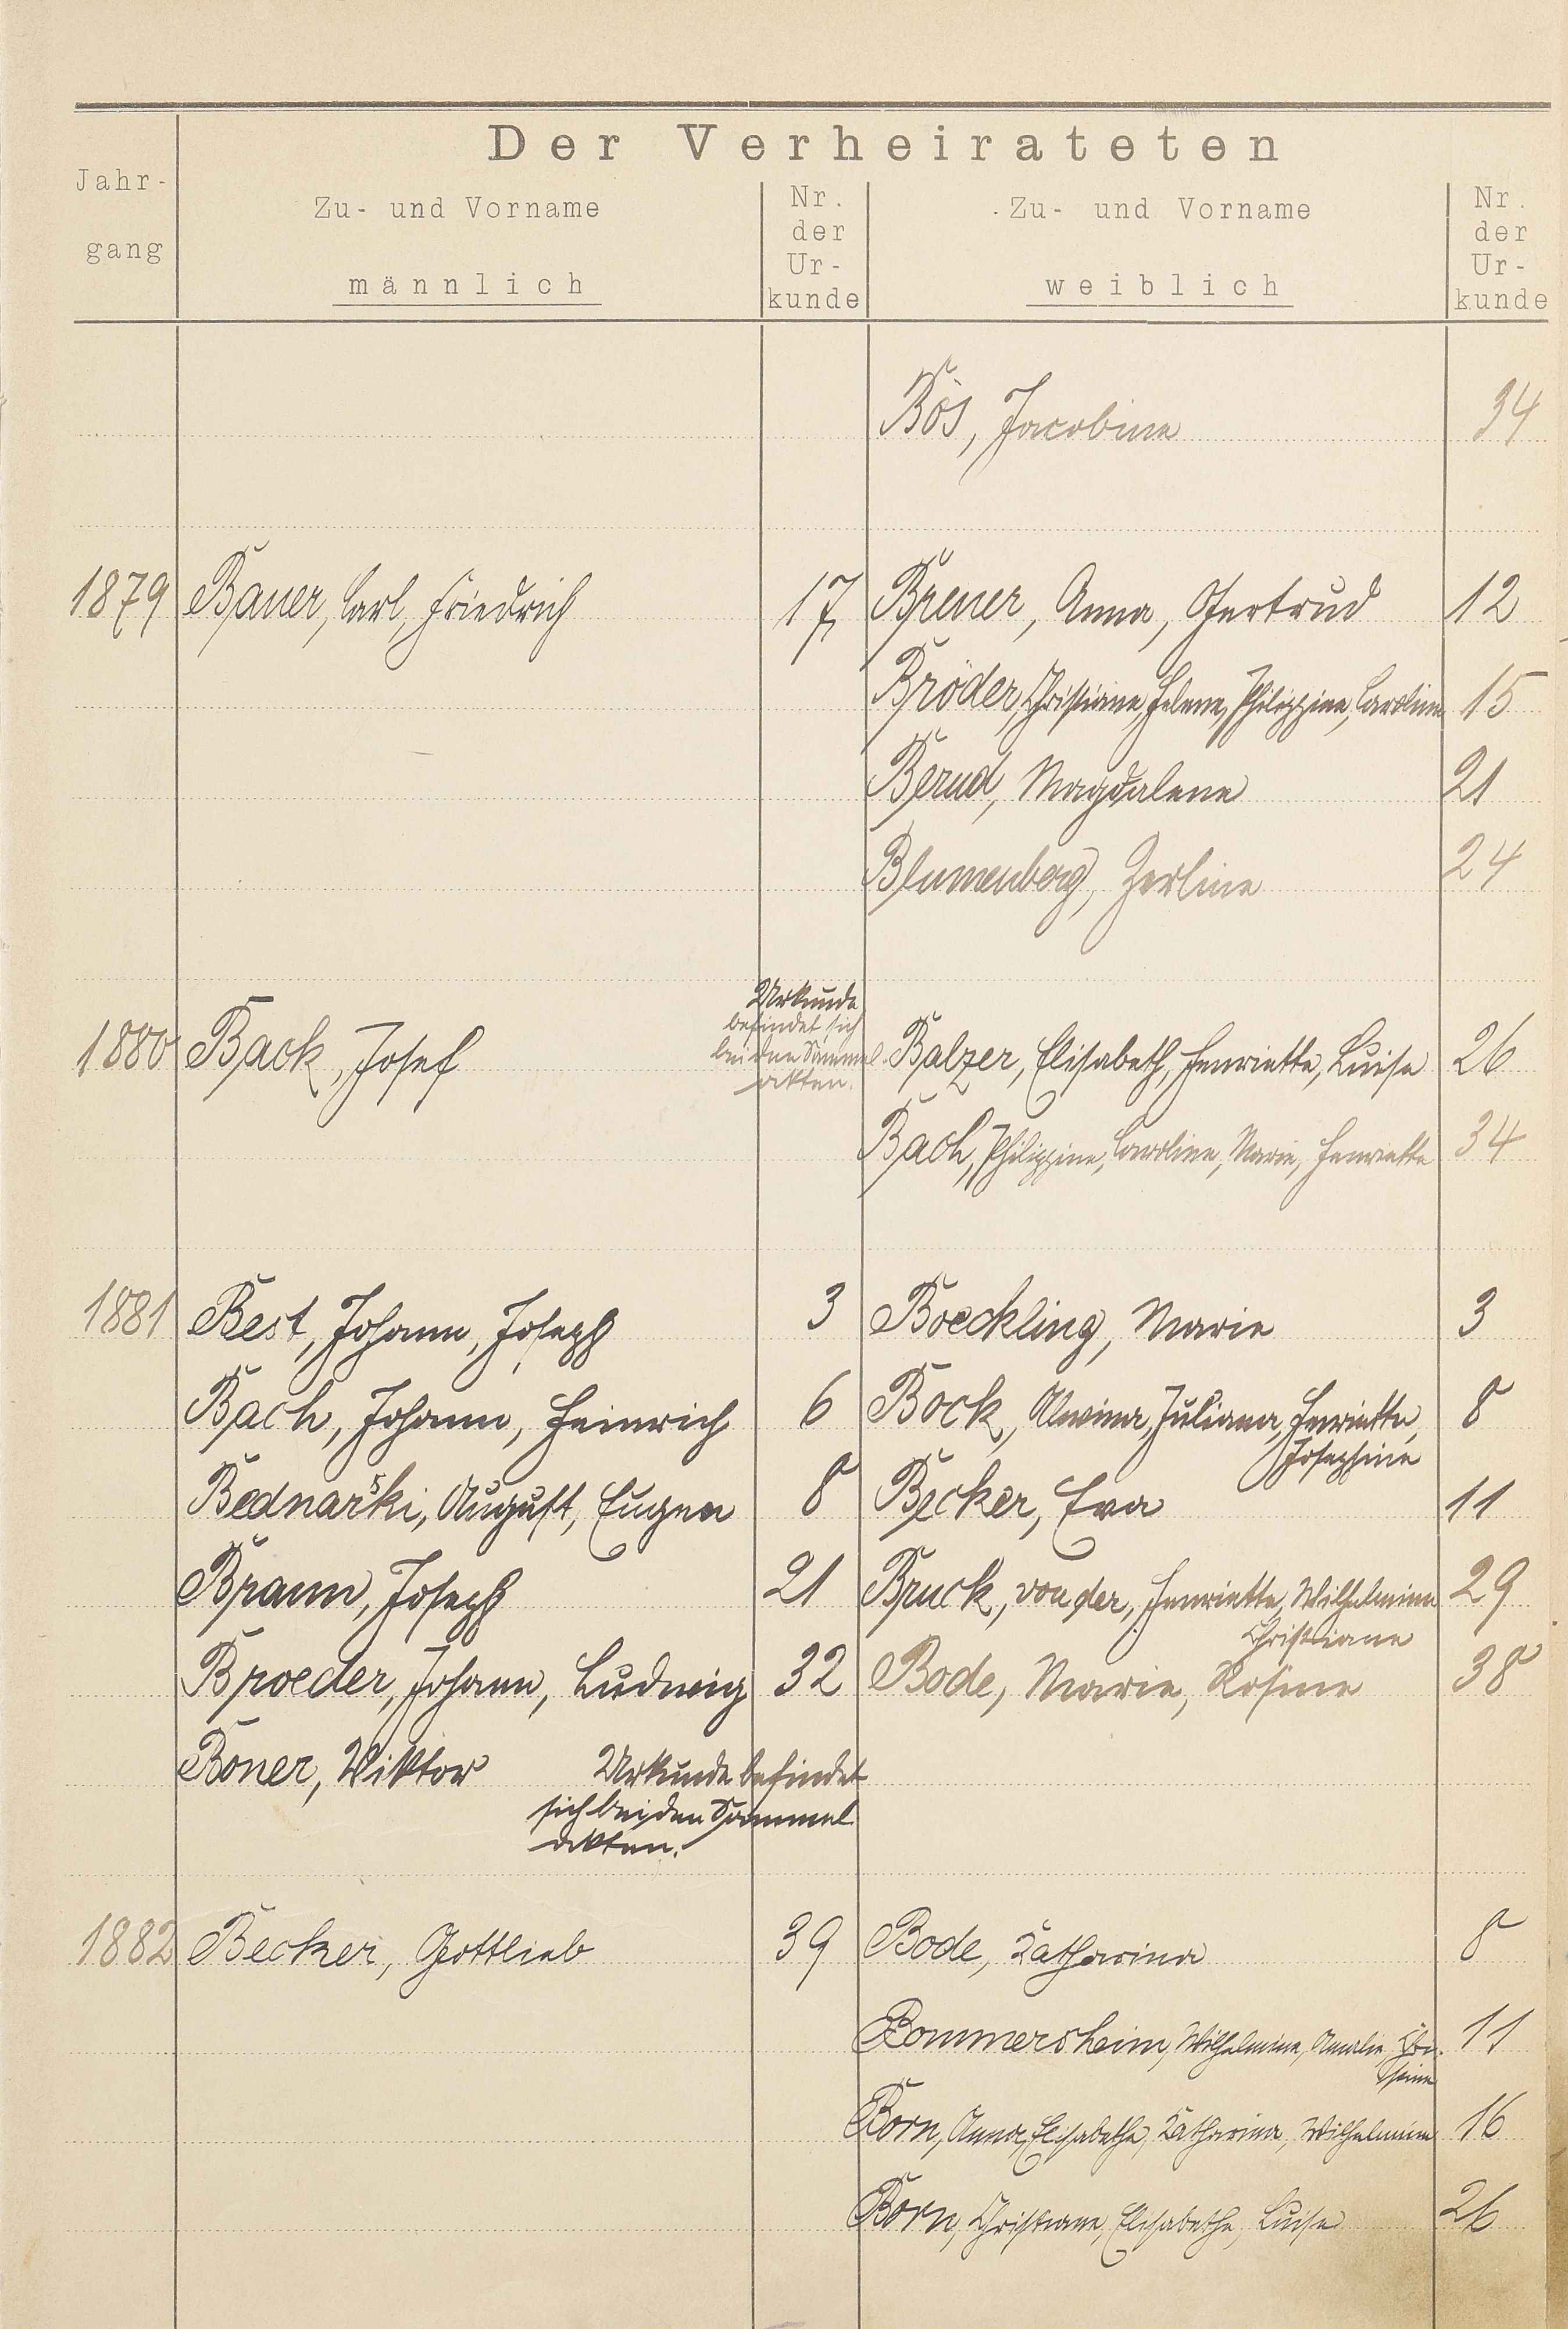 Der Verheirateten
Jahr-
gang
Zu- und Vorname
männlich
Nr.
der
Ur-
kunde
Zu- und Vorname
weiblich
Nr.
der
Ur-
kunde
Bös, Jacobine 34
1879 Bauer, Carl, Friedrich 17 Breuer, Anna, Gertrud 12
Bröder, Christiane, Helene, Philippine, Caroline 15
Bernd, Magdalene 21
Blumenberg, Zerline 24
1880 Back, Josef
Urkunde
befindet sich
bei den Sammel-
akten.
Balzer, Elisabeth, Henriette, Luise 26
Bach, Philippine, Caroline, Marie, Henriette 34
1881 Best, Johann, Joseph 3 Boeckling, Marie 3
Bach, Johann, Heinrich 6 Bock, Alwina, Juliana, Henriette, 8
Josephine
Bednarski, August, Eugen 8 Becker, Eva 11
Braun, Joseph 21 Bruck, von der, Henriette, Wilhelmine 29
Christiane
Broeder, Johann, Ludwig 32 Bode, Marie, Rosine 38
Boner, Viktor
Urkunde befindet
sich bei den Sammel
akten.
1882 Becker, Gottlieb 39 Bode, Katharina 8
Bommersheim, Wilhelmine, Amalie, Chri- 11
stine
Born, Anna, Elisabetha, Katharina, Wilhelmine 16
Born, Christiane, Elisabethe, Luise 26